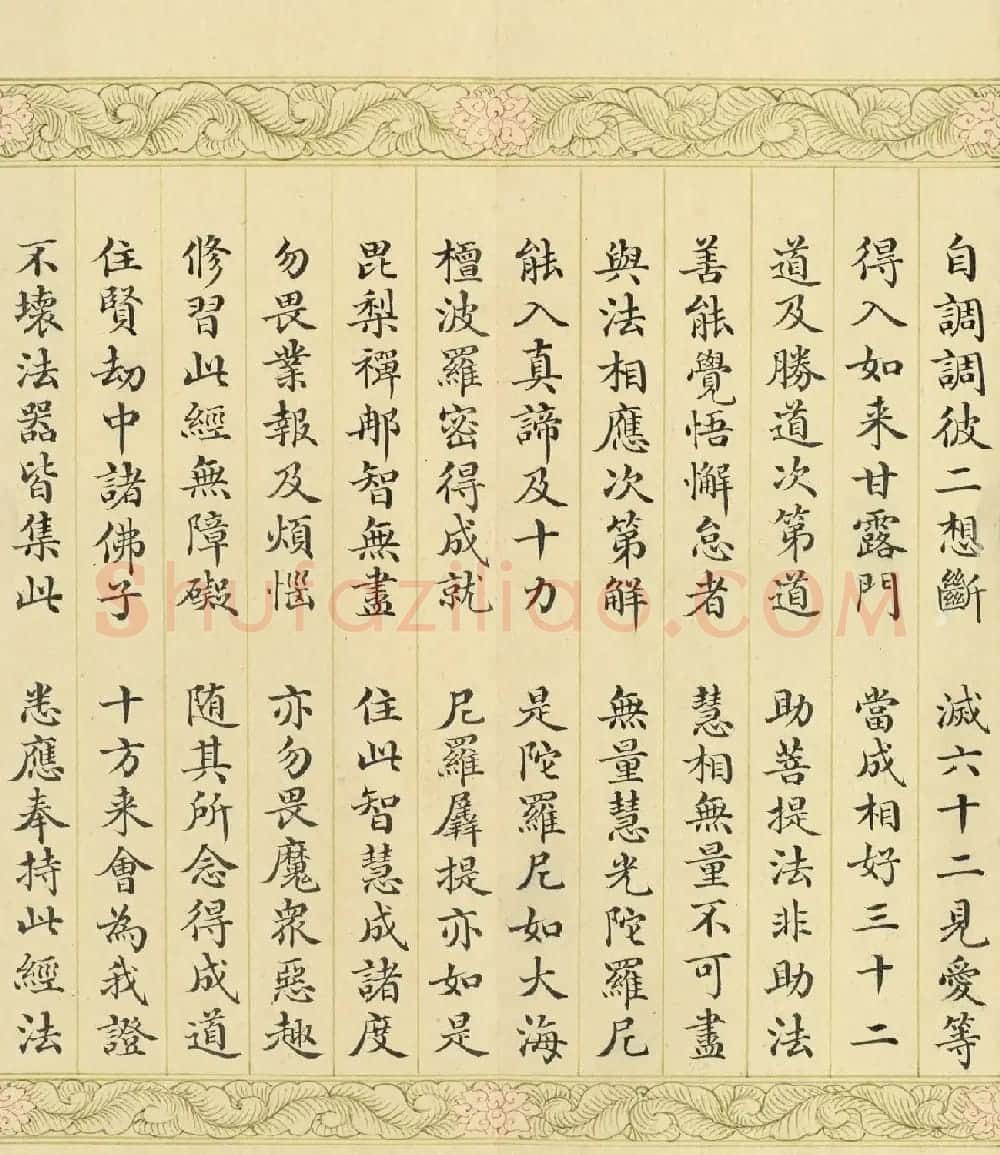 自調調彼二想斷　滅六十二見愛等
得入如来甘露門　當成相好三十二
道及勝道次第道　助菩提法非助法
善能覺悟懈怠者　慧相無量不可盡
與法相應次第解　無量慧光陀羅尼
能入真諦及十力　是陀羅尼如大海
檀波羅密得成就　尸羅羼提亦如是
毘梨禪那智無盡　住此智慧成諸度
勿畏業報及煩惱　亦勿畏魔眾惡趣
修習此經無障礙　随其所念得成道
住賢劫中諸佛子　十方来會為我證
不壞法器皆集此　悉應奉持此經法
Shufaziliao.COM